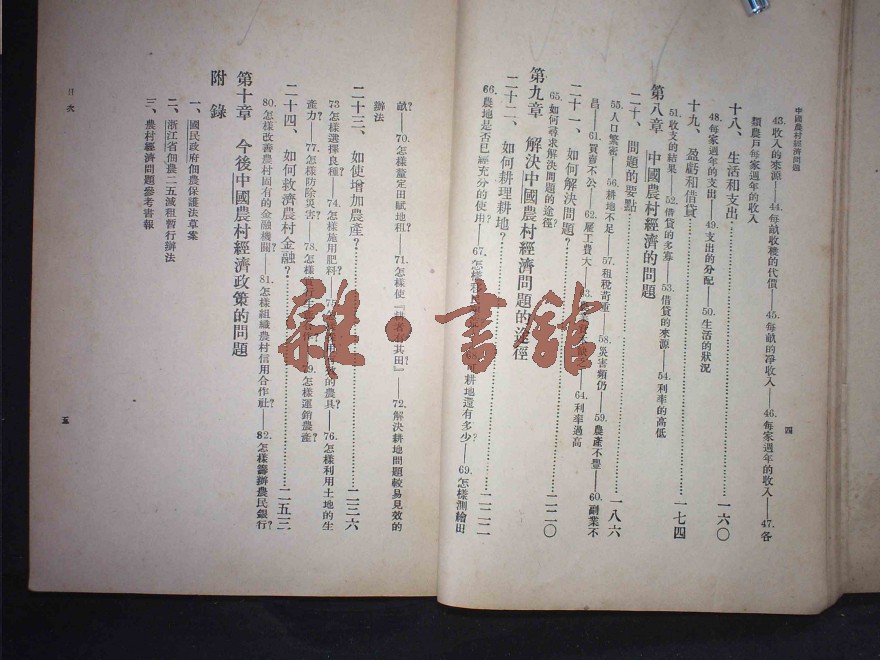 中國農村經濟問題
四
43.收入的來源——44.每畝收穫的代價——45.每畝的淨收入——46.每家週年的收入——47.各
類農戶每家週年的收入
十八、生活和支出……一六〇
48.每家週年的支出——49.支出的分配——50.生活的狀況
十九、盈虧和借貸……一七四
51.收支的結果——52.借貸的多寡——53.借貸的來源——54.利率的高低
第八章 中國農村經濟的問題
二十、問題的要點……一八六
55.人口繁密——56.耕地不足——57.租稅苛重——58.災害頻仍——59.農產不豐——60.副業不
昌——61.買賣不公——62.雇工費大——64.利率過高
第九章 解決中國農村經濟問題的途徑
二十一、如何解決問題?……二二〇
65.如何尋求解決問題的途徑?
二十二、如何耕理耕地?……二二二
66.農地是否已經充分的使用?——67.怎樣移民——68.可耕地還有多少?——69.怎樣測繪田
畝?——70.怎樣釐定田賦地租?——71.怎樣使『耕者有其田』——72.解決耕地問題較易見效的
辦法
二十三、如使增加農產?……二三六
73怎樣選擇良種?——74.怎樣施用肥料?——75.的農具?——76.怎樣利用土地的生
產力?——77.怎樣防除災害?——78.怎樣——79.怎樣運銷農產?
二十四、如何救濟農村金融?……二五三
80.怎樣改善農村固有的金融機關?——81.怎樣組織農村信用合作社?——82.怎樣籌辦農民銀行?
第十章 今後中國農村經濟政策的問題
附錄
一、國民政府佃農保護法草案
二、浙江省佃農二五減租暫行辦法
三、農村經濟問題參考書報
目次
五
雜·書館